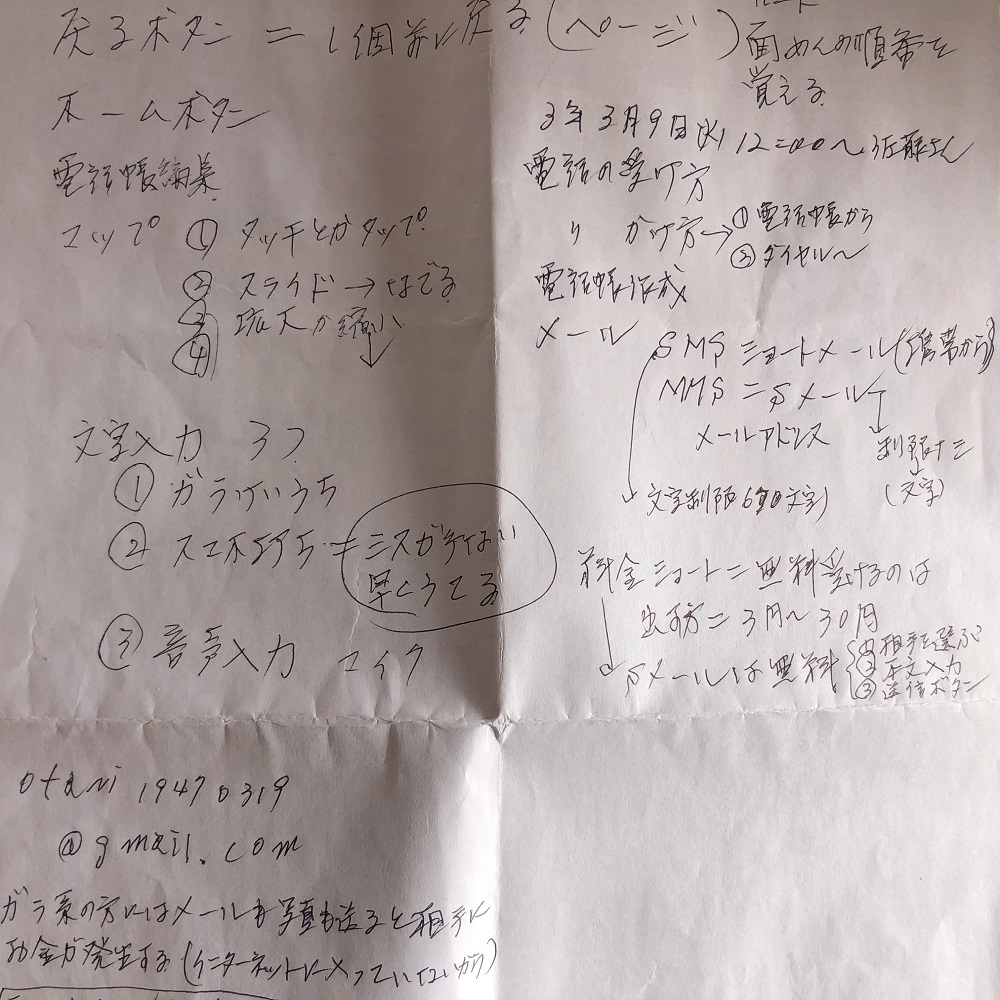 戻るボタン = 1個前に戻る(ページ)
ホームボタン
電話帳編集
マップ ① タッチとかタップ
② スライド→なでる
③ 拡大か縮小
④
文字入力 3つ
① ガラけいうち
② スマホうち = ミスが少ない
早くうてる
③ 音声入力 マイク
画めんの順番を
覚える
3年3月9日(火)12=00〜近藤さん
電話の受け方
〃 かけ方→①電話帳から
②ダイヤル〜
電話帳作成
メール
SMS ショートメール(携帯から)
MMS = Sメール
メールアドレス
制限ナシ
(文字)
文字制限 文字)
料金ショート=無料受けるのは
出す方=3円〜30円
Sメールは無料
①相手を選ぶ
②本文入力
③送信ボタン
otani 19470319
@gmail.com
ガラ系の方にはメールも写真も送ると相手に
お金が発生する(インターネットに入っていないから)